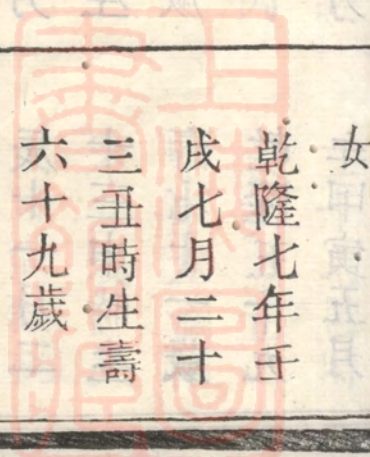 女
乾隆七年壬
戌七月二十
三丑時生壽
六十九歲